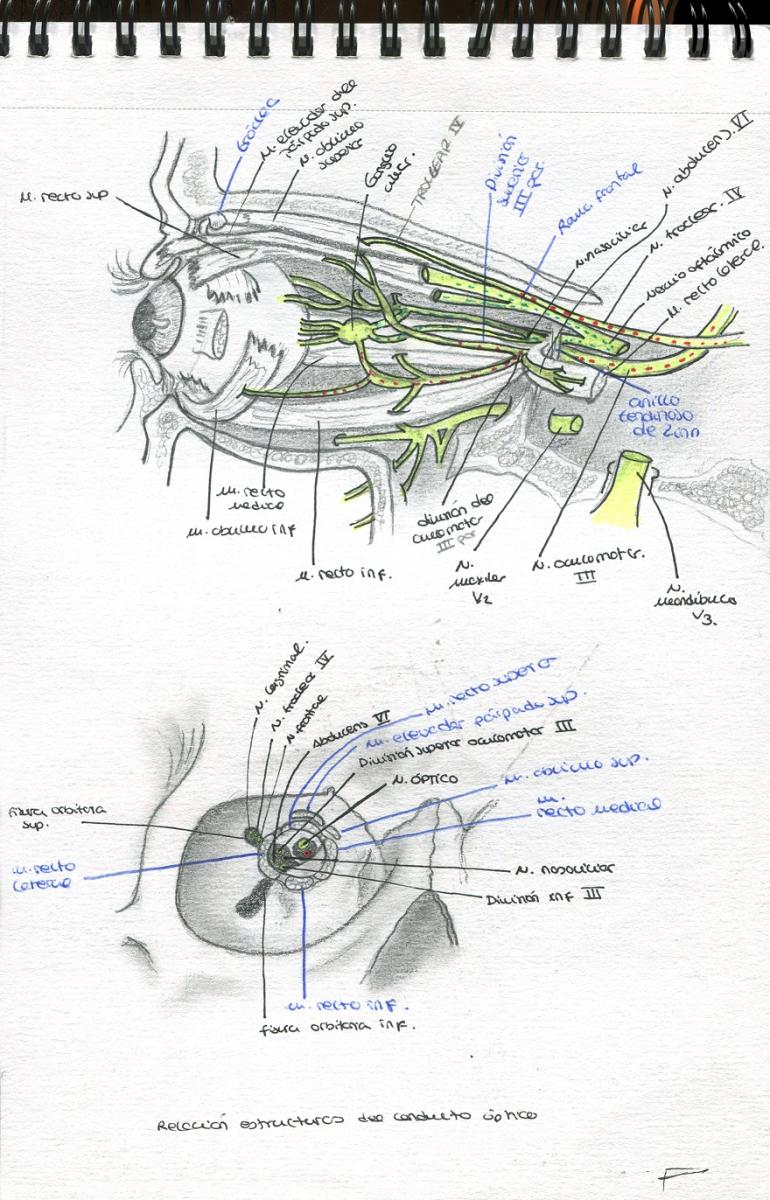 Tróclea
M. elevador del
párpado sup.
M. oblicuo
superior
Ganglio
ciliar.
TROCLEAR IV
División
superior
III par.
Rama frontal
N. abducens. VI
N. nasociliar
N. troclear. IV
Nervio oftálmico
M. recto lateral.
M. recto sup
anillo
tendinoso
de Zinn
M. recto
medial
M. oblicuo inf
M. recto inf.
división del
oculomotor
III par
N.
maxilar
V2
N. oculomotor.
III
N.
mandibular
V3.
N. lagrimal.
N. troclear IV
N. frontal
Abducens VI
M. recto superior
M. elevador párpado sup.
División superior oculomotor III
N. ÓPTICO
M. oblicuo sup.
M.
recto medial
Fisura orbitaria
sup.
M. recto
lateral
N. nasociliar
División inf III
M. recto inf.
fisura orbitaria inf.
Relación estructuras del conducto óptico